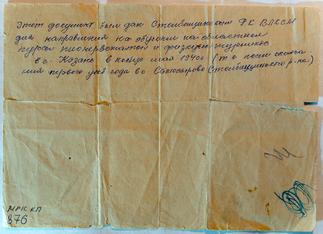 Этот документ был дан Столбищенским РК ВЛКСМ
для направления на обучение на областные
курсы пионервожатой и физкультурника
в г. Казань в конце мая 1940г (т.е. после оконча-
ния первого уч. года в с. Сокуры Столбищенского р-на)
МРК КП
876